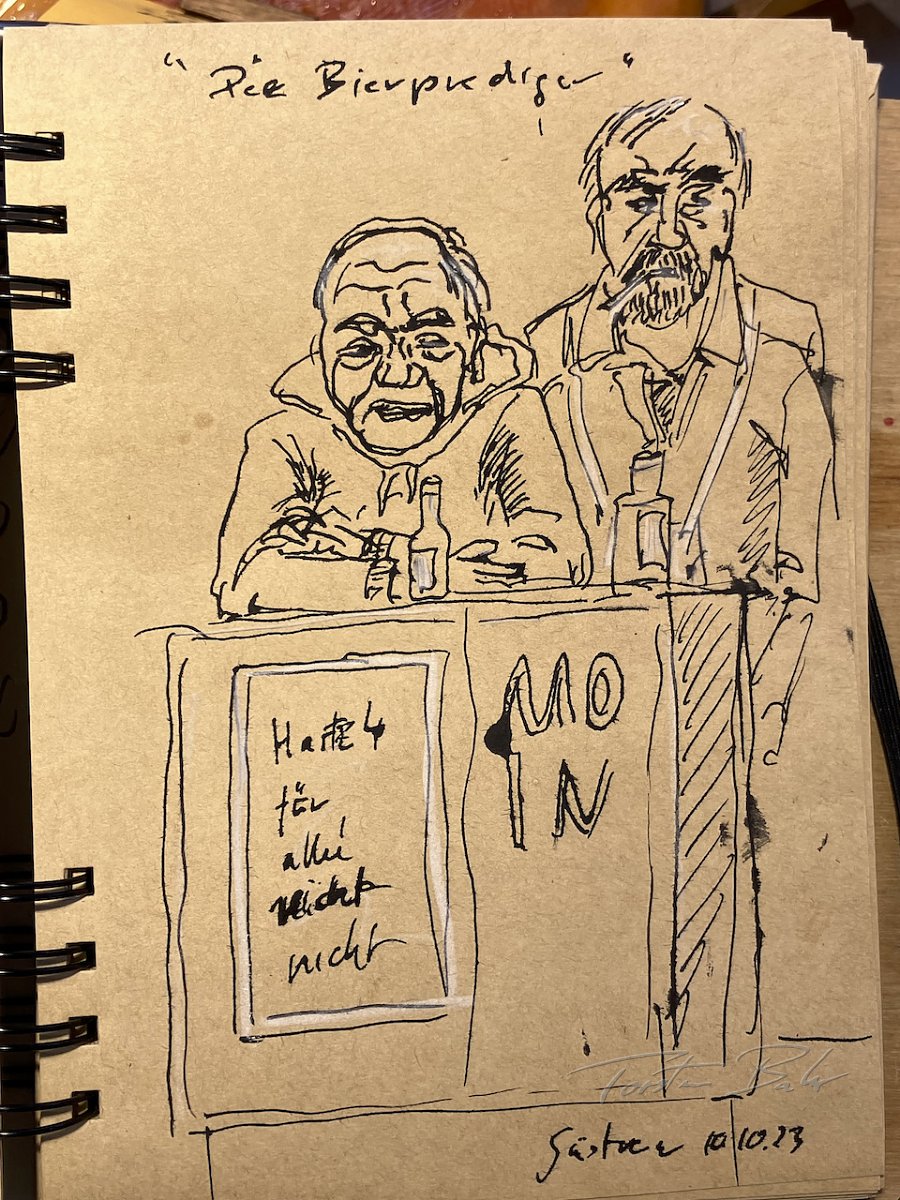 "Die Bierprediger"
MO
IN
Hartz 4
für
allei
reicht
nicht
Güstrow 10.10.23